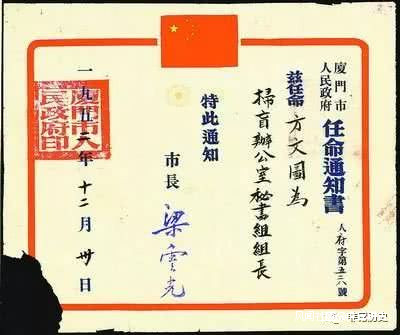 廈門市
人民政府
任命通知書
人府字第五三八號
茲任命方文圖為
掃盲辦公室秘書組組長
特此通知
市長
梁靈光
一九五二年十二月卅日
廈門市人
民政府印